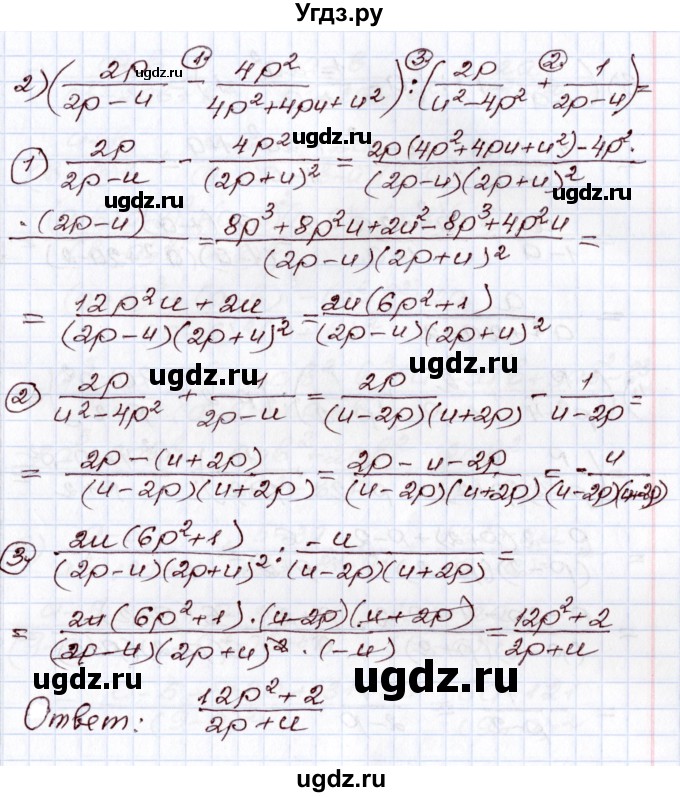 Угдз.ру
2) (2p/(2p-u) - 4p²/(4p²+4pu+u²)) : (2p/(u²-4p²) + 1/(2p-u)) =
1 3 2
ugdz.ru
ugdz.ru
1) 2p/(2p-u) - 4p²/(2p+u)² = 2p(4p²+4pu+u²)-4p²·/(2p-u)(2p+u)²
ugdz.ru
ugdz.ru
·(2p-u) = 8p³+8p²u+2u²-8p³+4p²u/(2p-u)(2p+u)² =
= 12p²u+2u/(2p-u)(2p+u)² = 2u(6p²+1)/(2p-u)(2p+u)²
ugdz.ru
ugdz.ru
2) 2p/(u²-4p²) + 1/(2p-u) = 2p/(u-2p)(u+2p) - 1/(u-2p) =
= 2p-(u+2p)/(u-2p)(u+2p) = 2p-u-2p/(u-2p)(u+2p) = -u/(u-2p)(u+2p)
ugdz.ru
ugdz.ru
3) 2u(6p²+1)/(2p-u)(2p+u)² : -u/(u-2p)(u+2p) =
= 2u(6p²+1)·(u-2p)(u+2p)/(2p-u)(2p+u)²·(-u) = 12p²+2/2p+u
ugdz.ru
ugdz.ru
Ответ: 12p²+2/2p+u
ugdz.ru
ugdz.ru